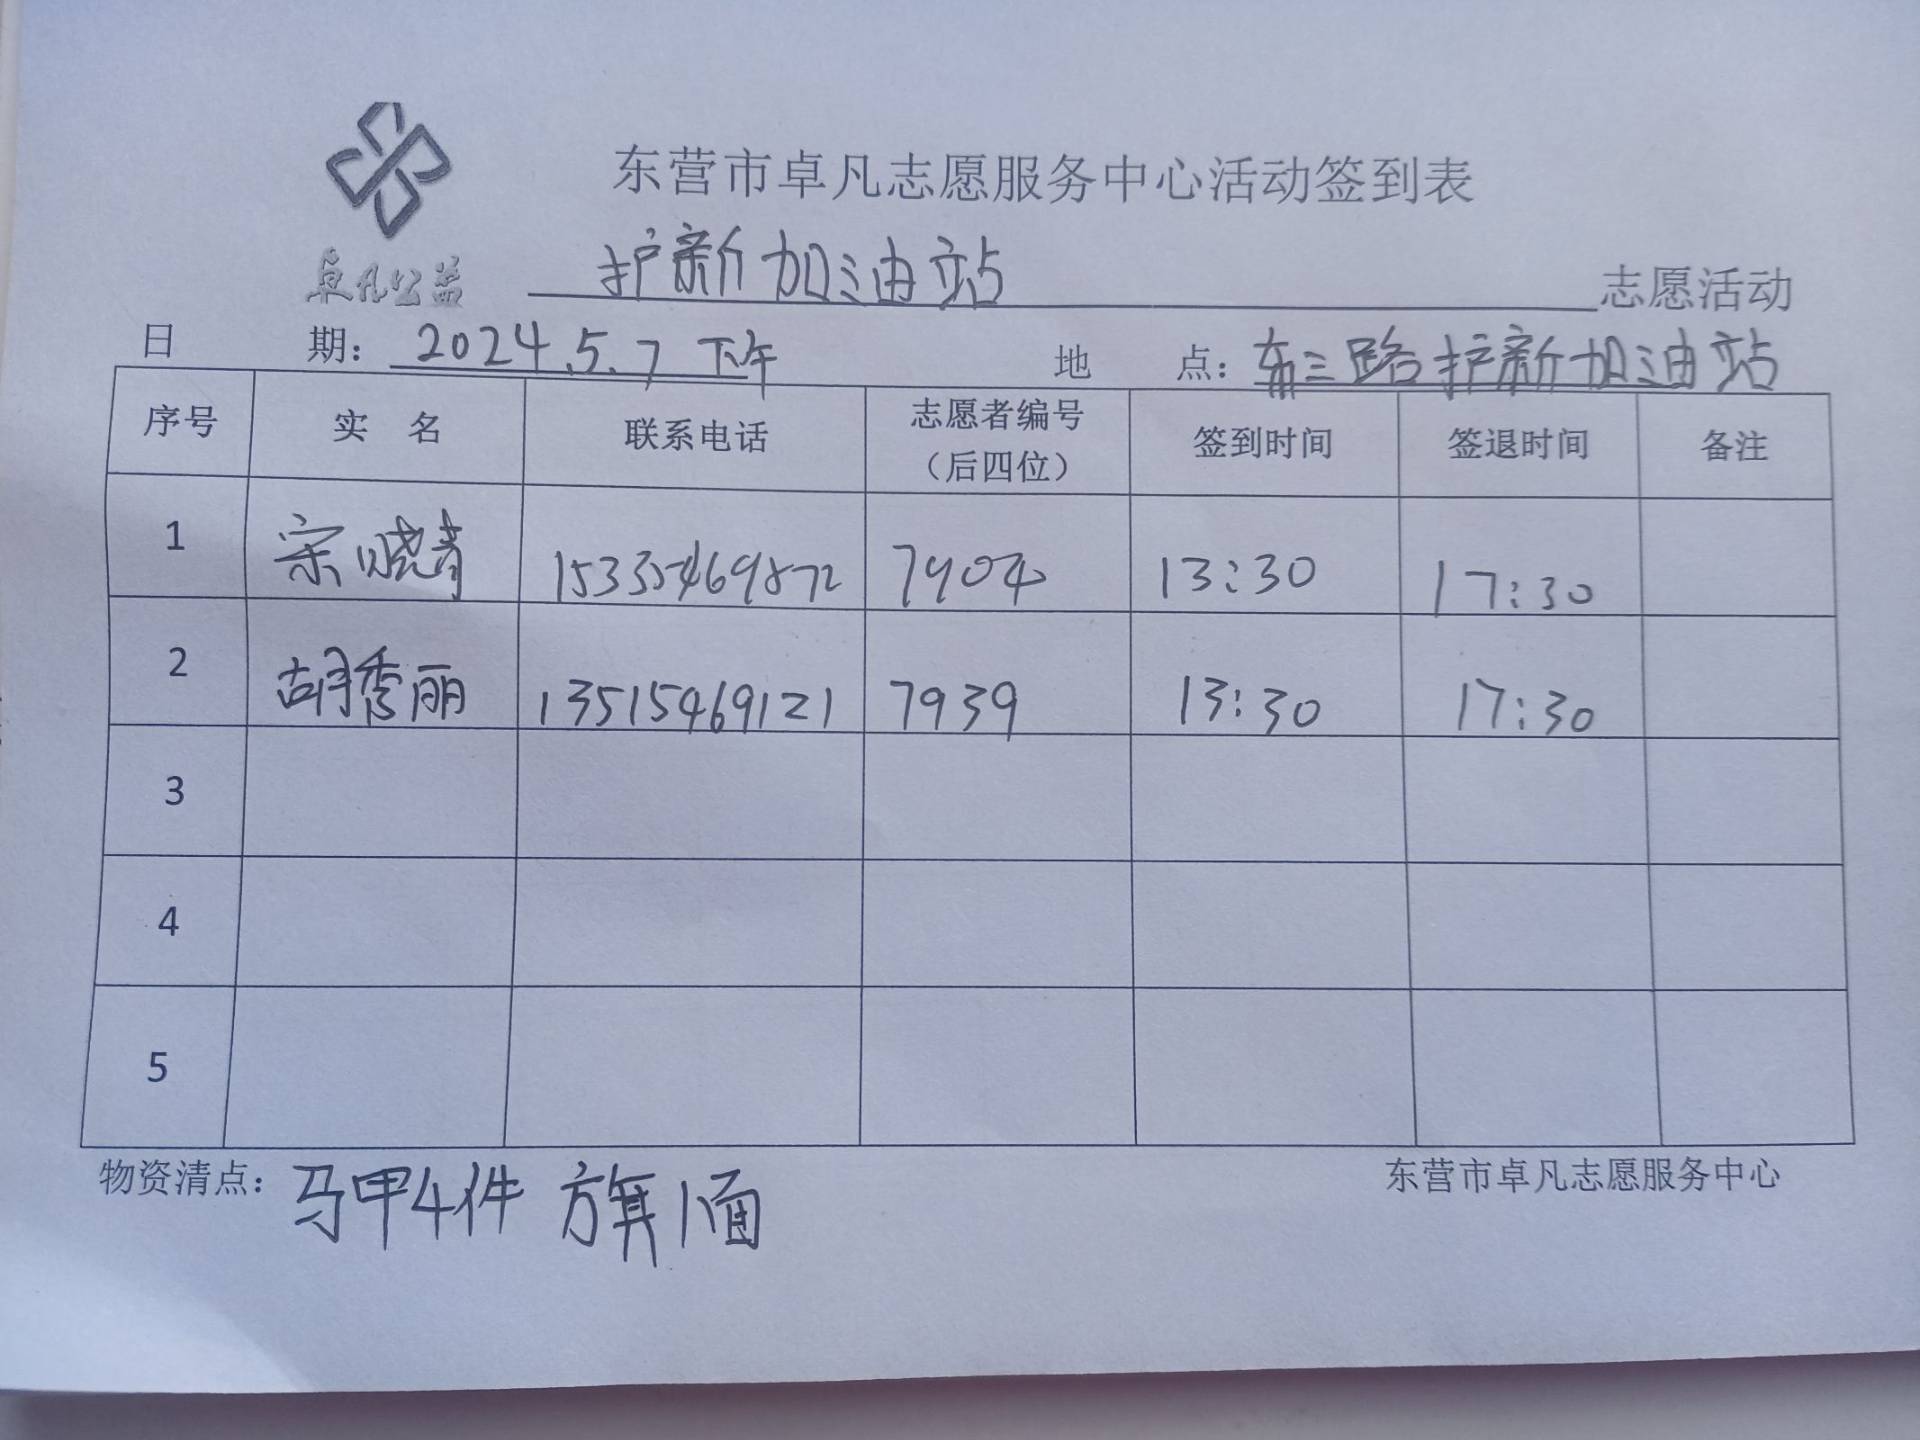 东营市卓凡志愿服务中心活动签到表
卓凡公益
护新加油站 志愿活动
日 期：2024.5.7 下午 地 点：东三路护新加油站
序号 实 名 联系电话 志愿者编号（后四位） 签到时间 签退时间 备注
1 宋晓青 15335469872 7904 13:30 17:30
2 胡秀丽 13515469121 7939 13:30 17:30
3
4
5
物资清点：马甲4件 旗1面 东营市卓凡志愿服务中心